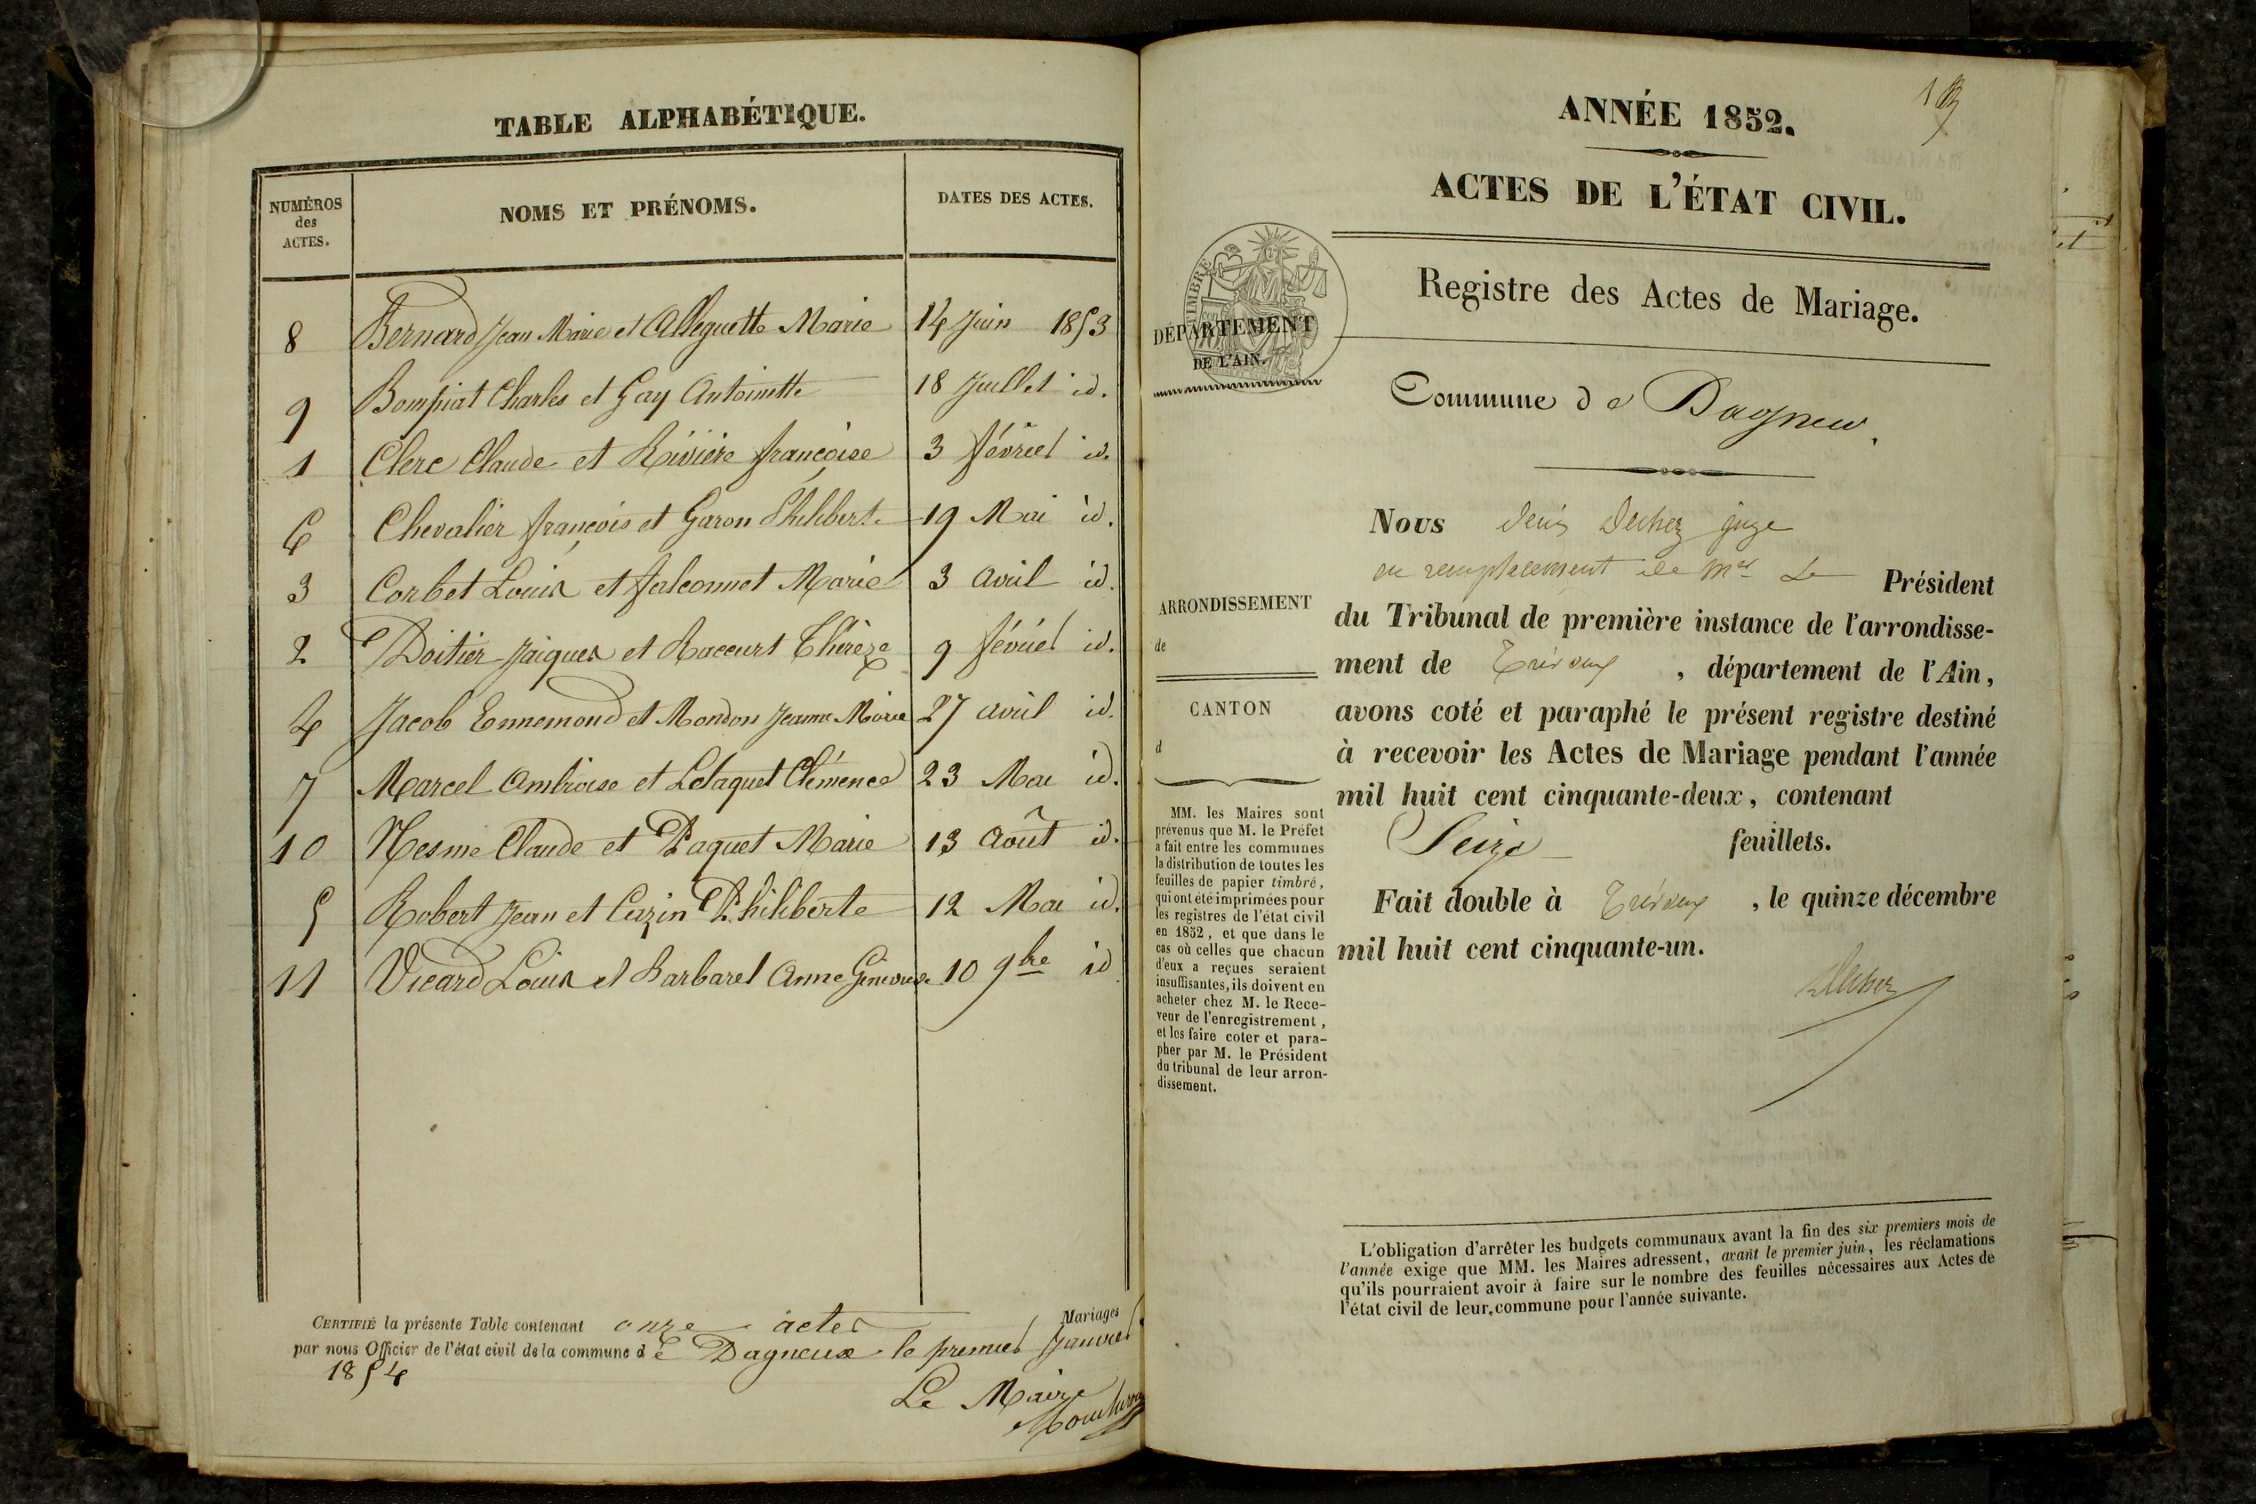 TABLE ALPHABÉTIQUE.
NUMÉROS des ACTES.
NOMS ET PRÉNOMS.
DATES DES ACTES.
8 Bernard Jean Marie et Alleguette Marie 14 Juin 1853
9 Bompiat Charles et Gay Antoinette 18 Juillet id.
1 Clerc Claude et Rivière françoise 3 février id.
6 Chevalier françois et Garon Philiberte 19 Mai id.
3 Corbet Louis et falconnet Marie 3 avril id.
2 Doitier Jaiques et Raccurt Thérèze 9 février id.
4 Jacob Ennemond et Mondon Jeanne Marie 27 avril id.
7 Marcel Ambroise et Lelaquet Clémence 23 Mai id.
10 Nesme Claude et Paquet Marie 13 Août id.
5 Robert Jean et Cuzin Philiberte 12 Mai id.
11 Vicard Louis et Barbarel Anne Genevieve 10 9bre id
CERTIFIÉ la présente Table contenant onze actes Mariages
par nous Officier de l'état civil de la commune de Dagneux le premier Janvier
1854
Le Maire
13
ANNÉE 1852.
ACTES DE L'ÉTAT CIVIL.
TIMBRE
DÉPARTEMENT
DE L'AIN.
Registre des Actes de Mariage.
Commune de Dagneux.
Nous Denis Dechez juge
en remplacement de Mr Le Président
du Tribunal de première instance de l'arrondisse-
ment de Trévoux, département de l'Ain,
avons coté et paraphé le présent registre destiné
à recevoir les Actes de Mariage pendant l'année
mil huit cent cinquante-deux, contenant
Seize feuillets.
Fait double à Trévoux, le quinze décembre
mil huit cent cinquante-un.
Dechez
ARRONDISSEMENT
de
CANTON
d
MM. les Maires sont
prévenus que M. le Préfet
a fait entre les communes
la distribution de toutes les
feuilles de papier timbré,
qui ont été imprimées pour
les registres de l'état civil
en 1852, et que dans le
cas où celles que chacun
d'eux a reçues seraient
insuffisantes, ils doivent en
acheter chez M. le Rece-
veur de l'enregistrement,
et les faire coter et para-
pher par M. le Président
du tribunal de leur arron-
dissement.
L'obligation d'arrêter les budgets communaux avant la fin des six premiers mois de
l'année exige que MM. les Maires adressent, avant le premier juin, les réclamations
qu'ils pourraient avoir à faire sur le nombre des feuilles nécessaires aux Actes de
l'état civil de leur commune pour l'année suivante.